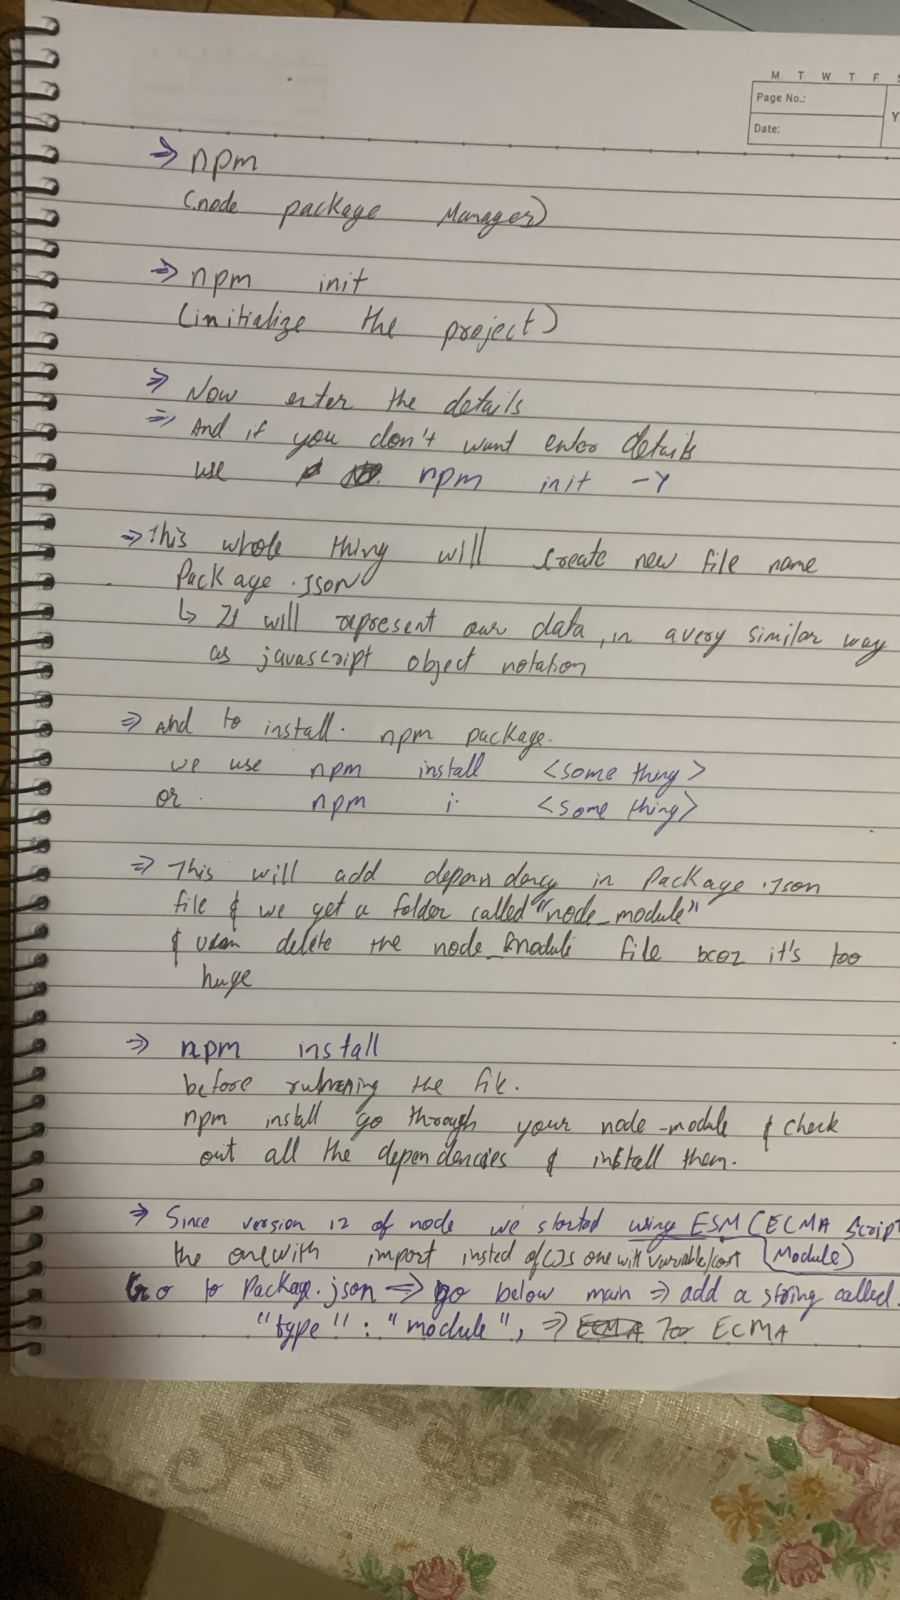 M T W T F S
Page No.:
Date:
Y
⇒ npm
(node package Manager)
⇒ npm init
(initialize the project)
⇒ Now enter the details
⇒ And if you don't want enter details
use npm init -Y
⇒ This whole thing will create new file name
Package.Json
↳ It will represent our data, in a very similar way
as javascript object notation
⇒ And to install. npm package.
we use npm install <some thing>
or. npm i. <some thing>
⇒ This will add dependancy in Package.Json
file & we get a folder called "node_module"
& delete the node_module file bcoz it's too
huge
⇒ npm install
before the file.
npm install go through your node-module & check
out all the dependencies & install them.
⇒ Since version 12 of node we started using ESM (ECMA Script
the one with import insted of CJS one with variable/cost (Module)
Go to Package.json ⇒ go below main ⇒ add a string called.
"type" : "module", ⇒ ECMA For ECMA